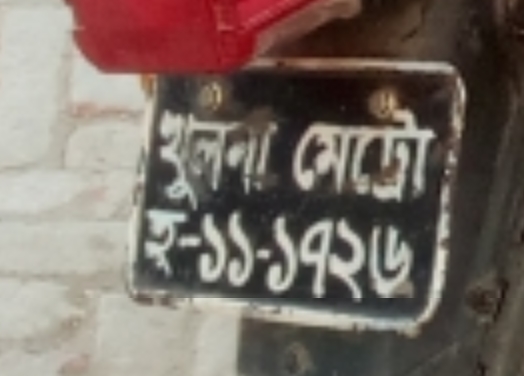 খুলনা মেট্রো
হ-১১-১৭২৬